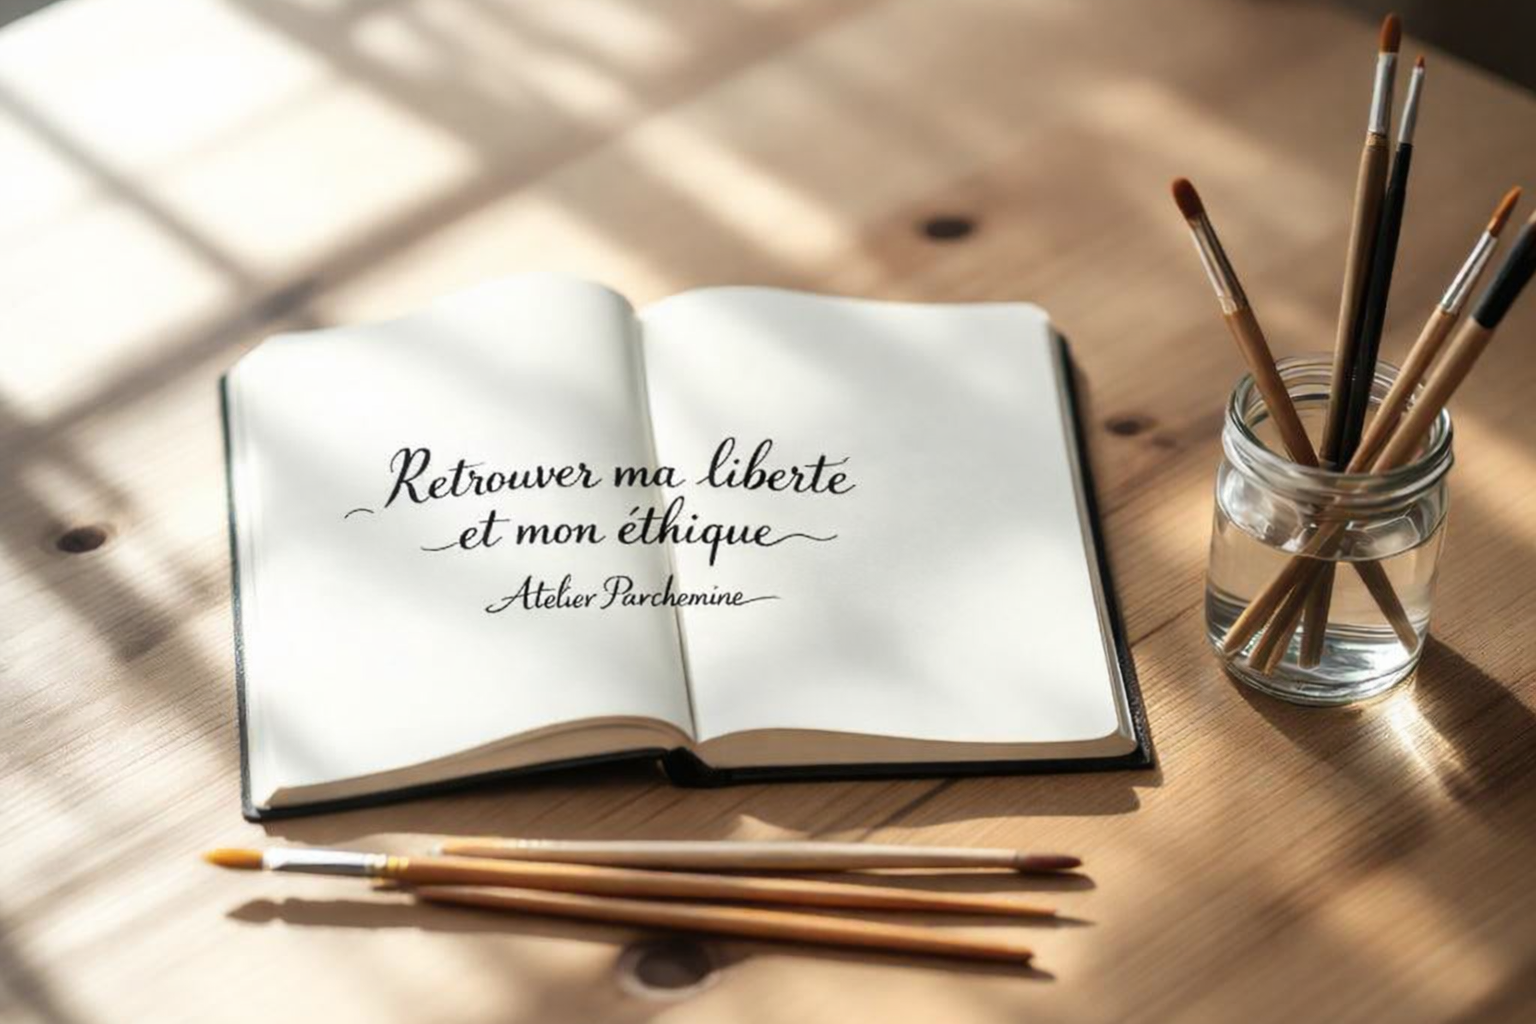 Retrouver ma liberté
et mon éthique
Atelier Parchemine